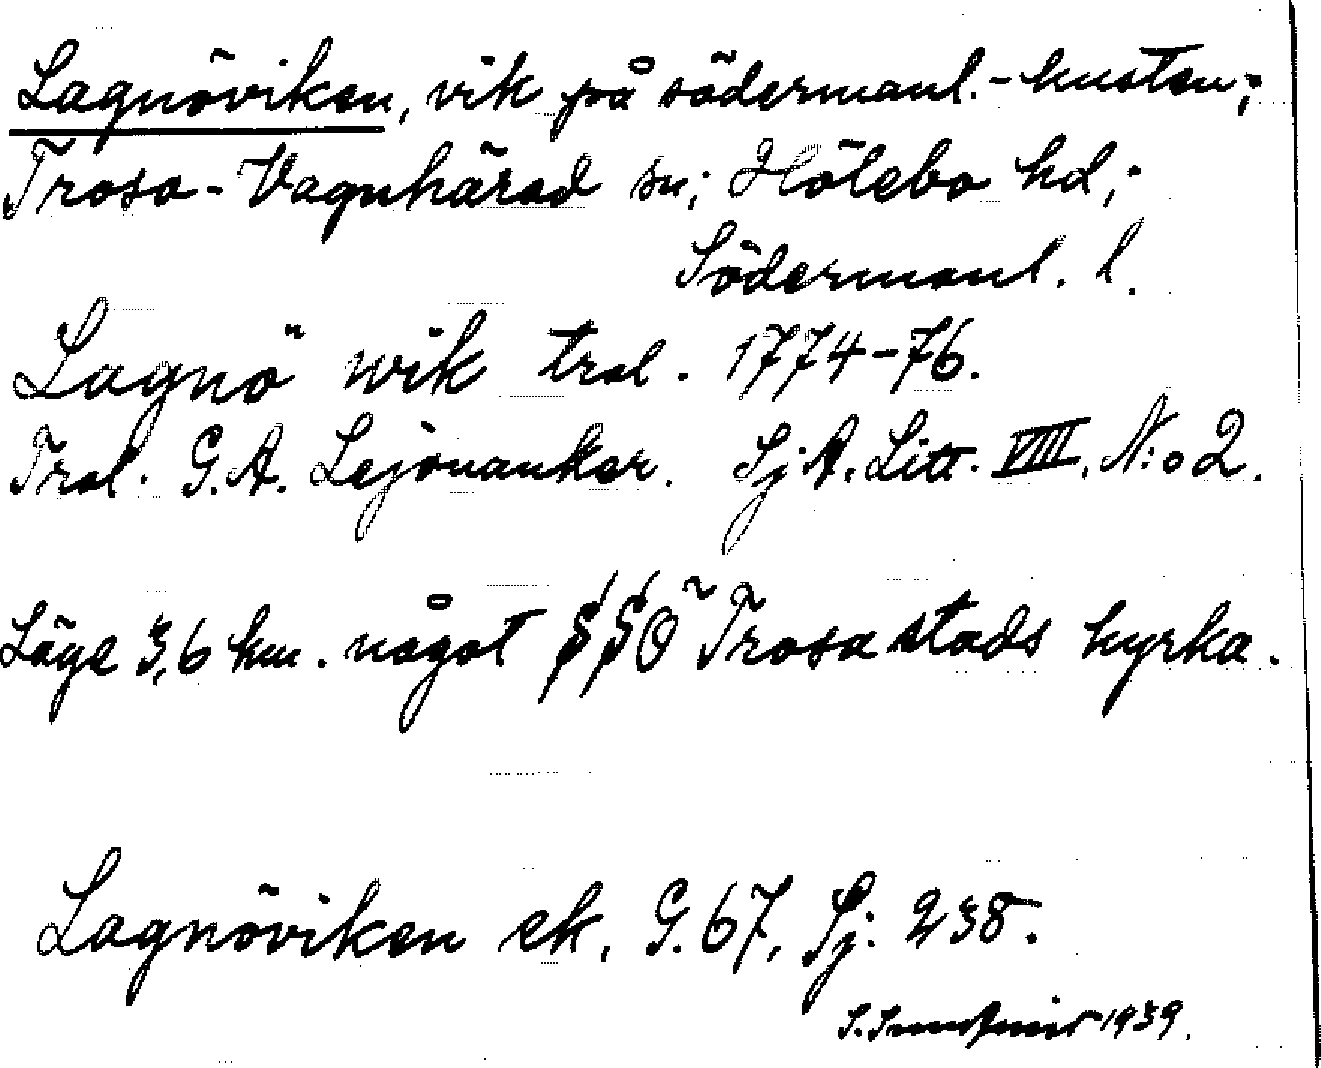 Lagnöviken, vik på södermanl.-kusten;
Trosa-Vagnhärad sn; Hölebo hd;
Södermanl. l.
Lagnö wik trol. 1774-76.
Trol. G.A. Lejonanker. Sj A. Litt. VIII. N:o 2.
Läge 3,6 km. något SSO Trosa stads kyrka.
Lagnöviken ek. G. 67, Sj. 238.
S. 1939.